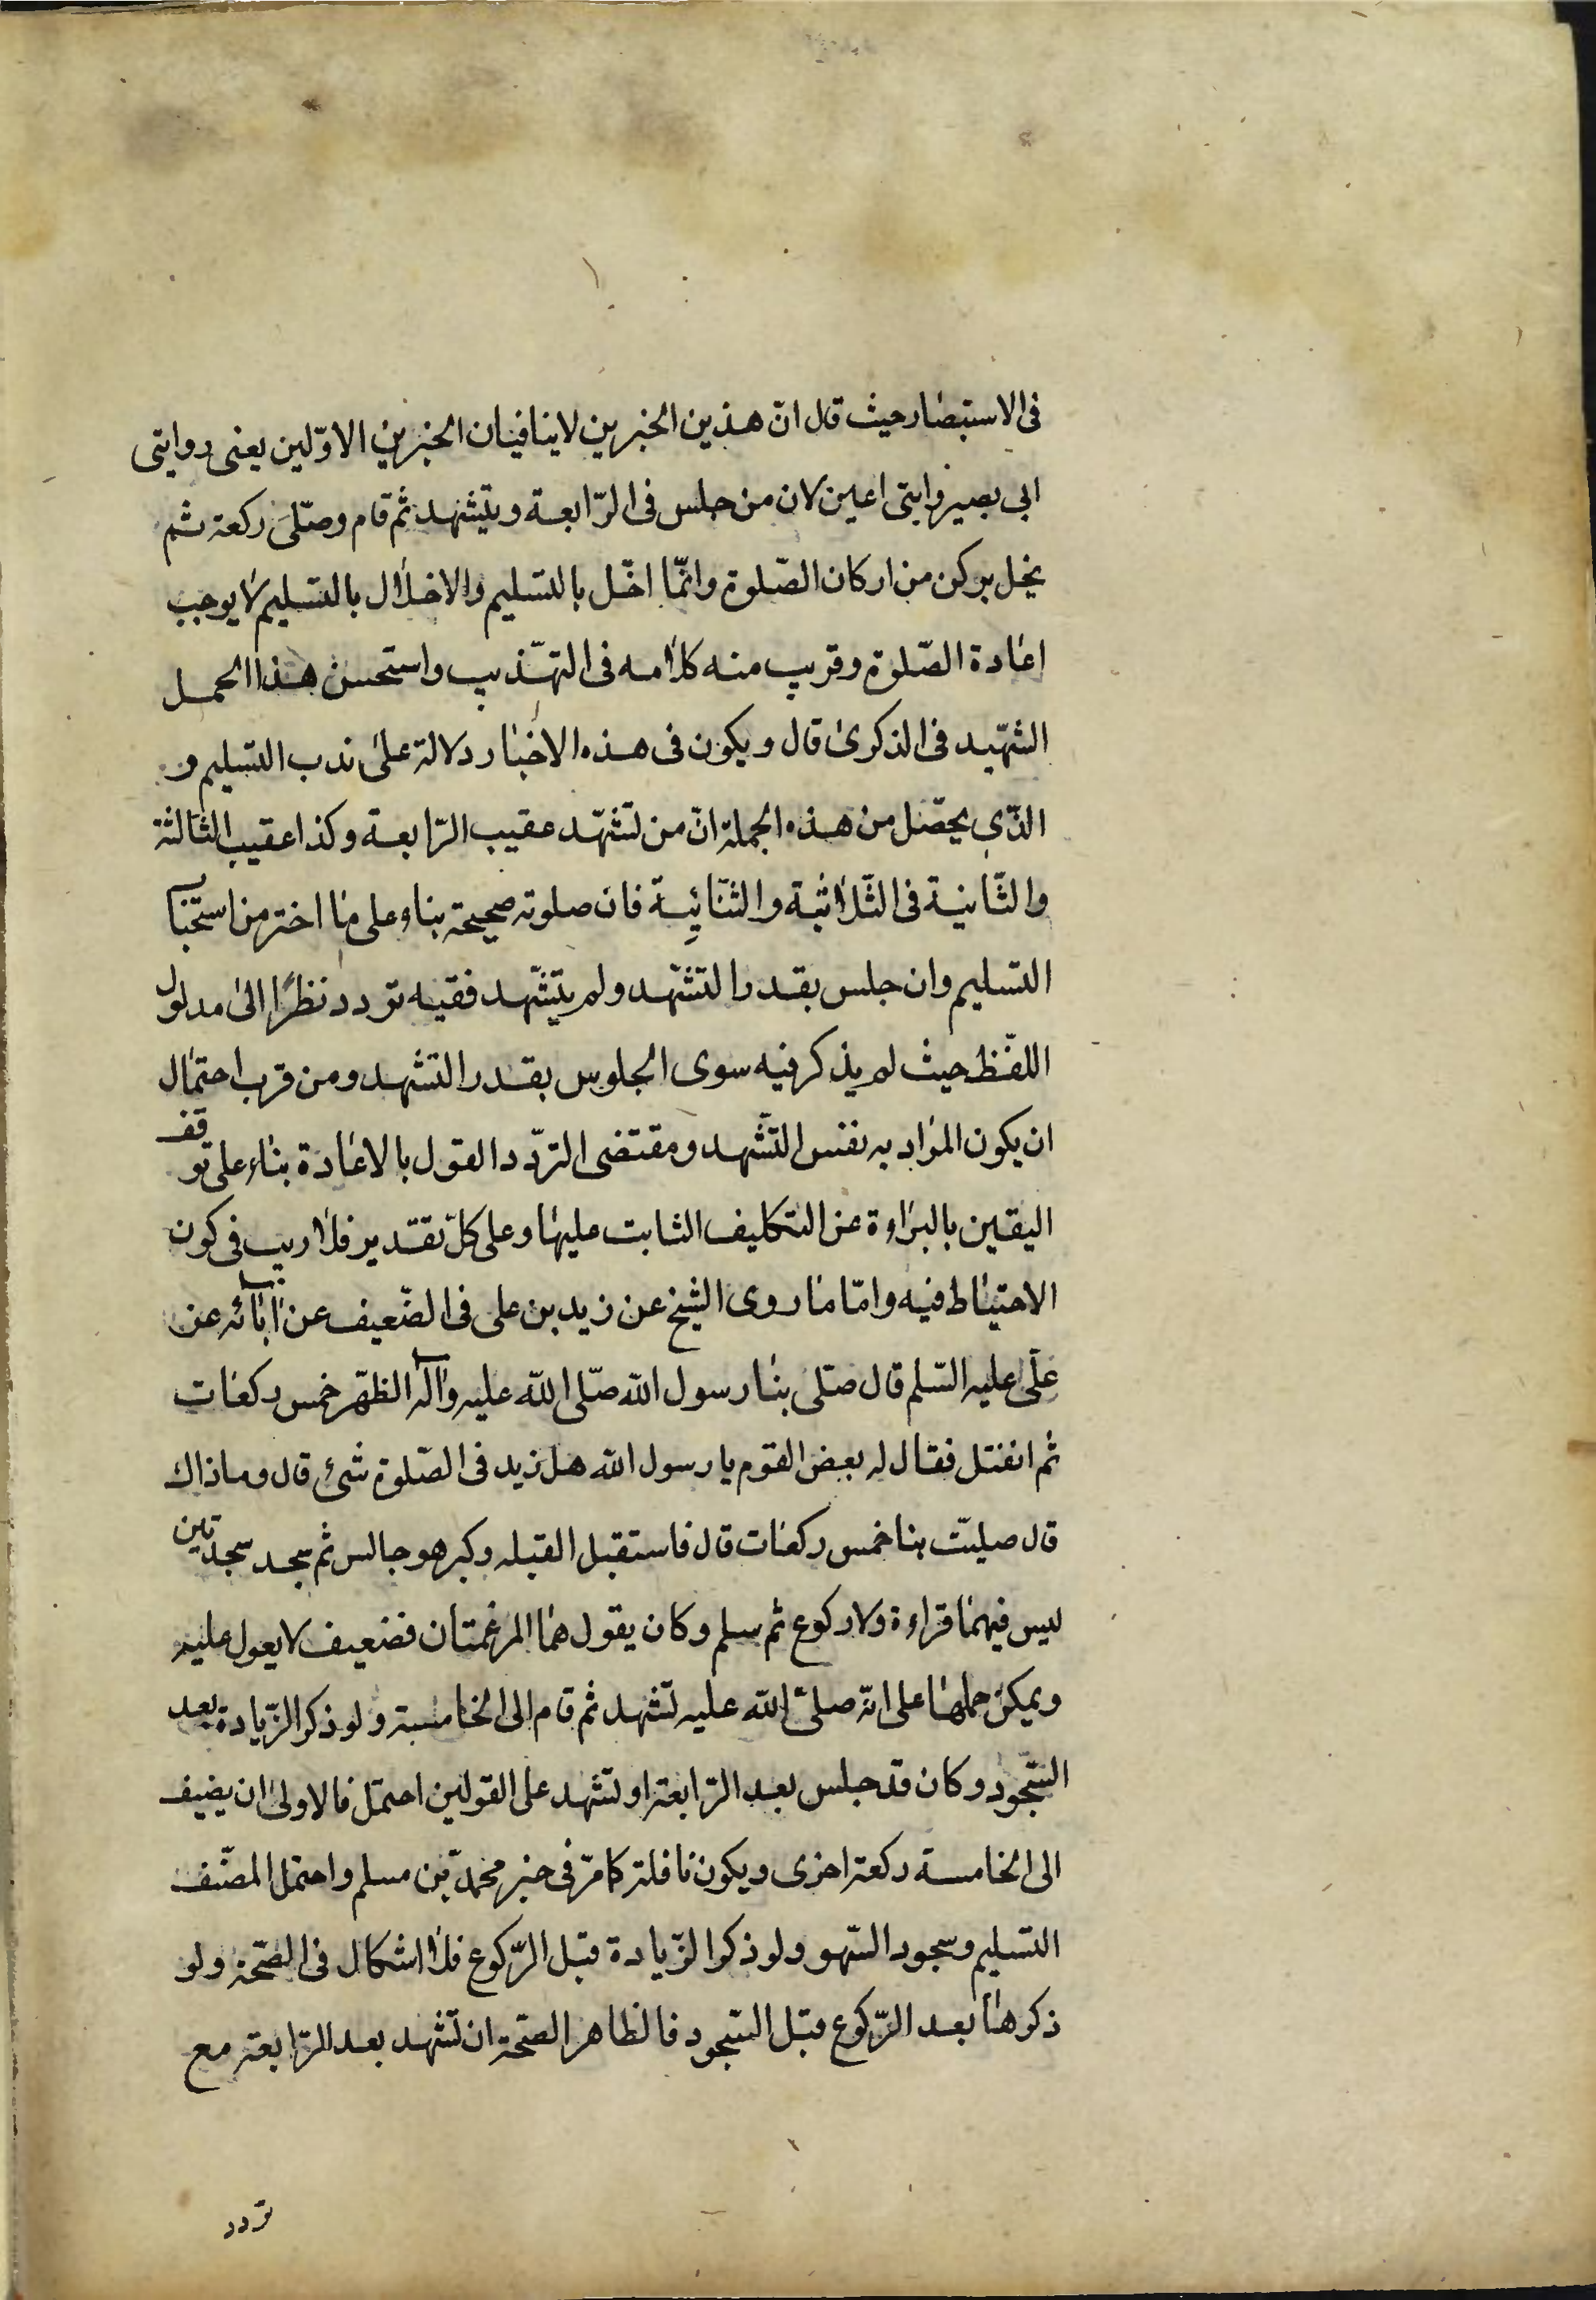 فى الاستبصار حيث قال انّ هذين الخبرين لا ينافيان الخبرين الاوّلين يعنى روايتى
ابى بصير وابنى اعين لان من جلس فى الرّابعة ويتشهد ثم قام وصلّى ركعة ثم
يخل بركن من اركان الصّلوة وانّما اخّل بالتسليم والاخلال بالتسليم لا يوجب
اعادة الصّلوة وقريب منه كلامه فى التهّذيب واستحسن هذا الحمل
الشهّيد فى الذكرى قال ويكون فى هذه الاخبار دلالة على ندب التسليم و
الذّى يحصّل من هذه الجملة انّ من تشهّد عقيب الرّابعة وكذا عقيب الثّالثة
والثّانية فى الثّلاثية والثنّائية فان صلوته صحيحة بناء على ما اختر من استحباب
التسليم وان جلس بقدر التشهّد ولم يتشّهد فقيه تردد نظرًا الى مدلول
اللفّظ حيث لم يذكر فيه سوى الجلوس بقدر التشهد ومن قرب احتمال
ان يكون المراد به نفس التّشهد ومقتضى التردّد القول بالاعادة بناء على توقف
اليقين بالبراءة عن التكليف الثابت عليها وعلى كلّ تقدير فلا ريب فى كون
الاحتياط فيه وامّا ما روى الشيخ عن زيد بن على فى الضّعيف عن آبائه عن
علّى عليه السّلم قال صلّى بنا رسول الله صلّى اللّه عليه وآله الظهّر خمس ركعات
ثم انفتل فقال له بعض القوم يا رسول الله هل زيد فى الصّلوة شئ قال وما ذاك
قال صليّت بنا خمس ركعات قال فاستقبل القبله وكبر هو جالس ثم سجد سجدتين
ليس فيهما قراءة ولا ركوع ثم سلم وكان يقول هما المرغمتان فضعيف لا يعول عليه
ويمكن حملها على انّه صلىّ اللّه عليه تشهد ثم قام الى الخامسة ولو ذكر الزّيادة بعد
السّجود وكان قد جلس بعد الرّابعة او تشهد على القولين احتمل فالاولى ان يضيف
الى الخامسة ركعة اخرى ويكون نافلة كما مرّ فى خبر محمدّ بن مسلم واحتمل المصنّف
التسليم وسجود السّهو ولو ذكر الزّيادة قبل الرّكوع فلا اشكال فى الصّحة ولو
ذكرها بعد الرّكوع قبل السّجود فالظاهر الصّحة ان تشهد بعد الرّابعة مع
تردد